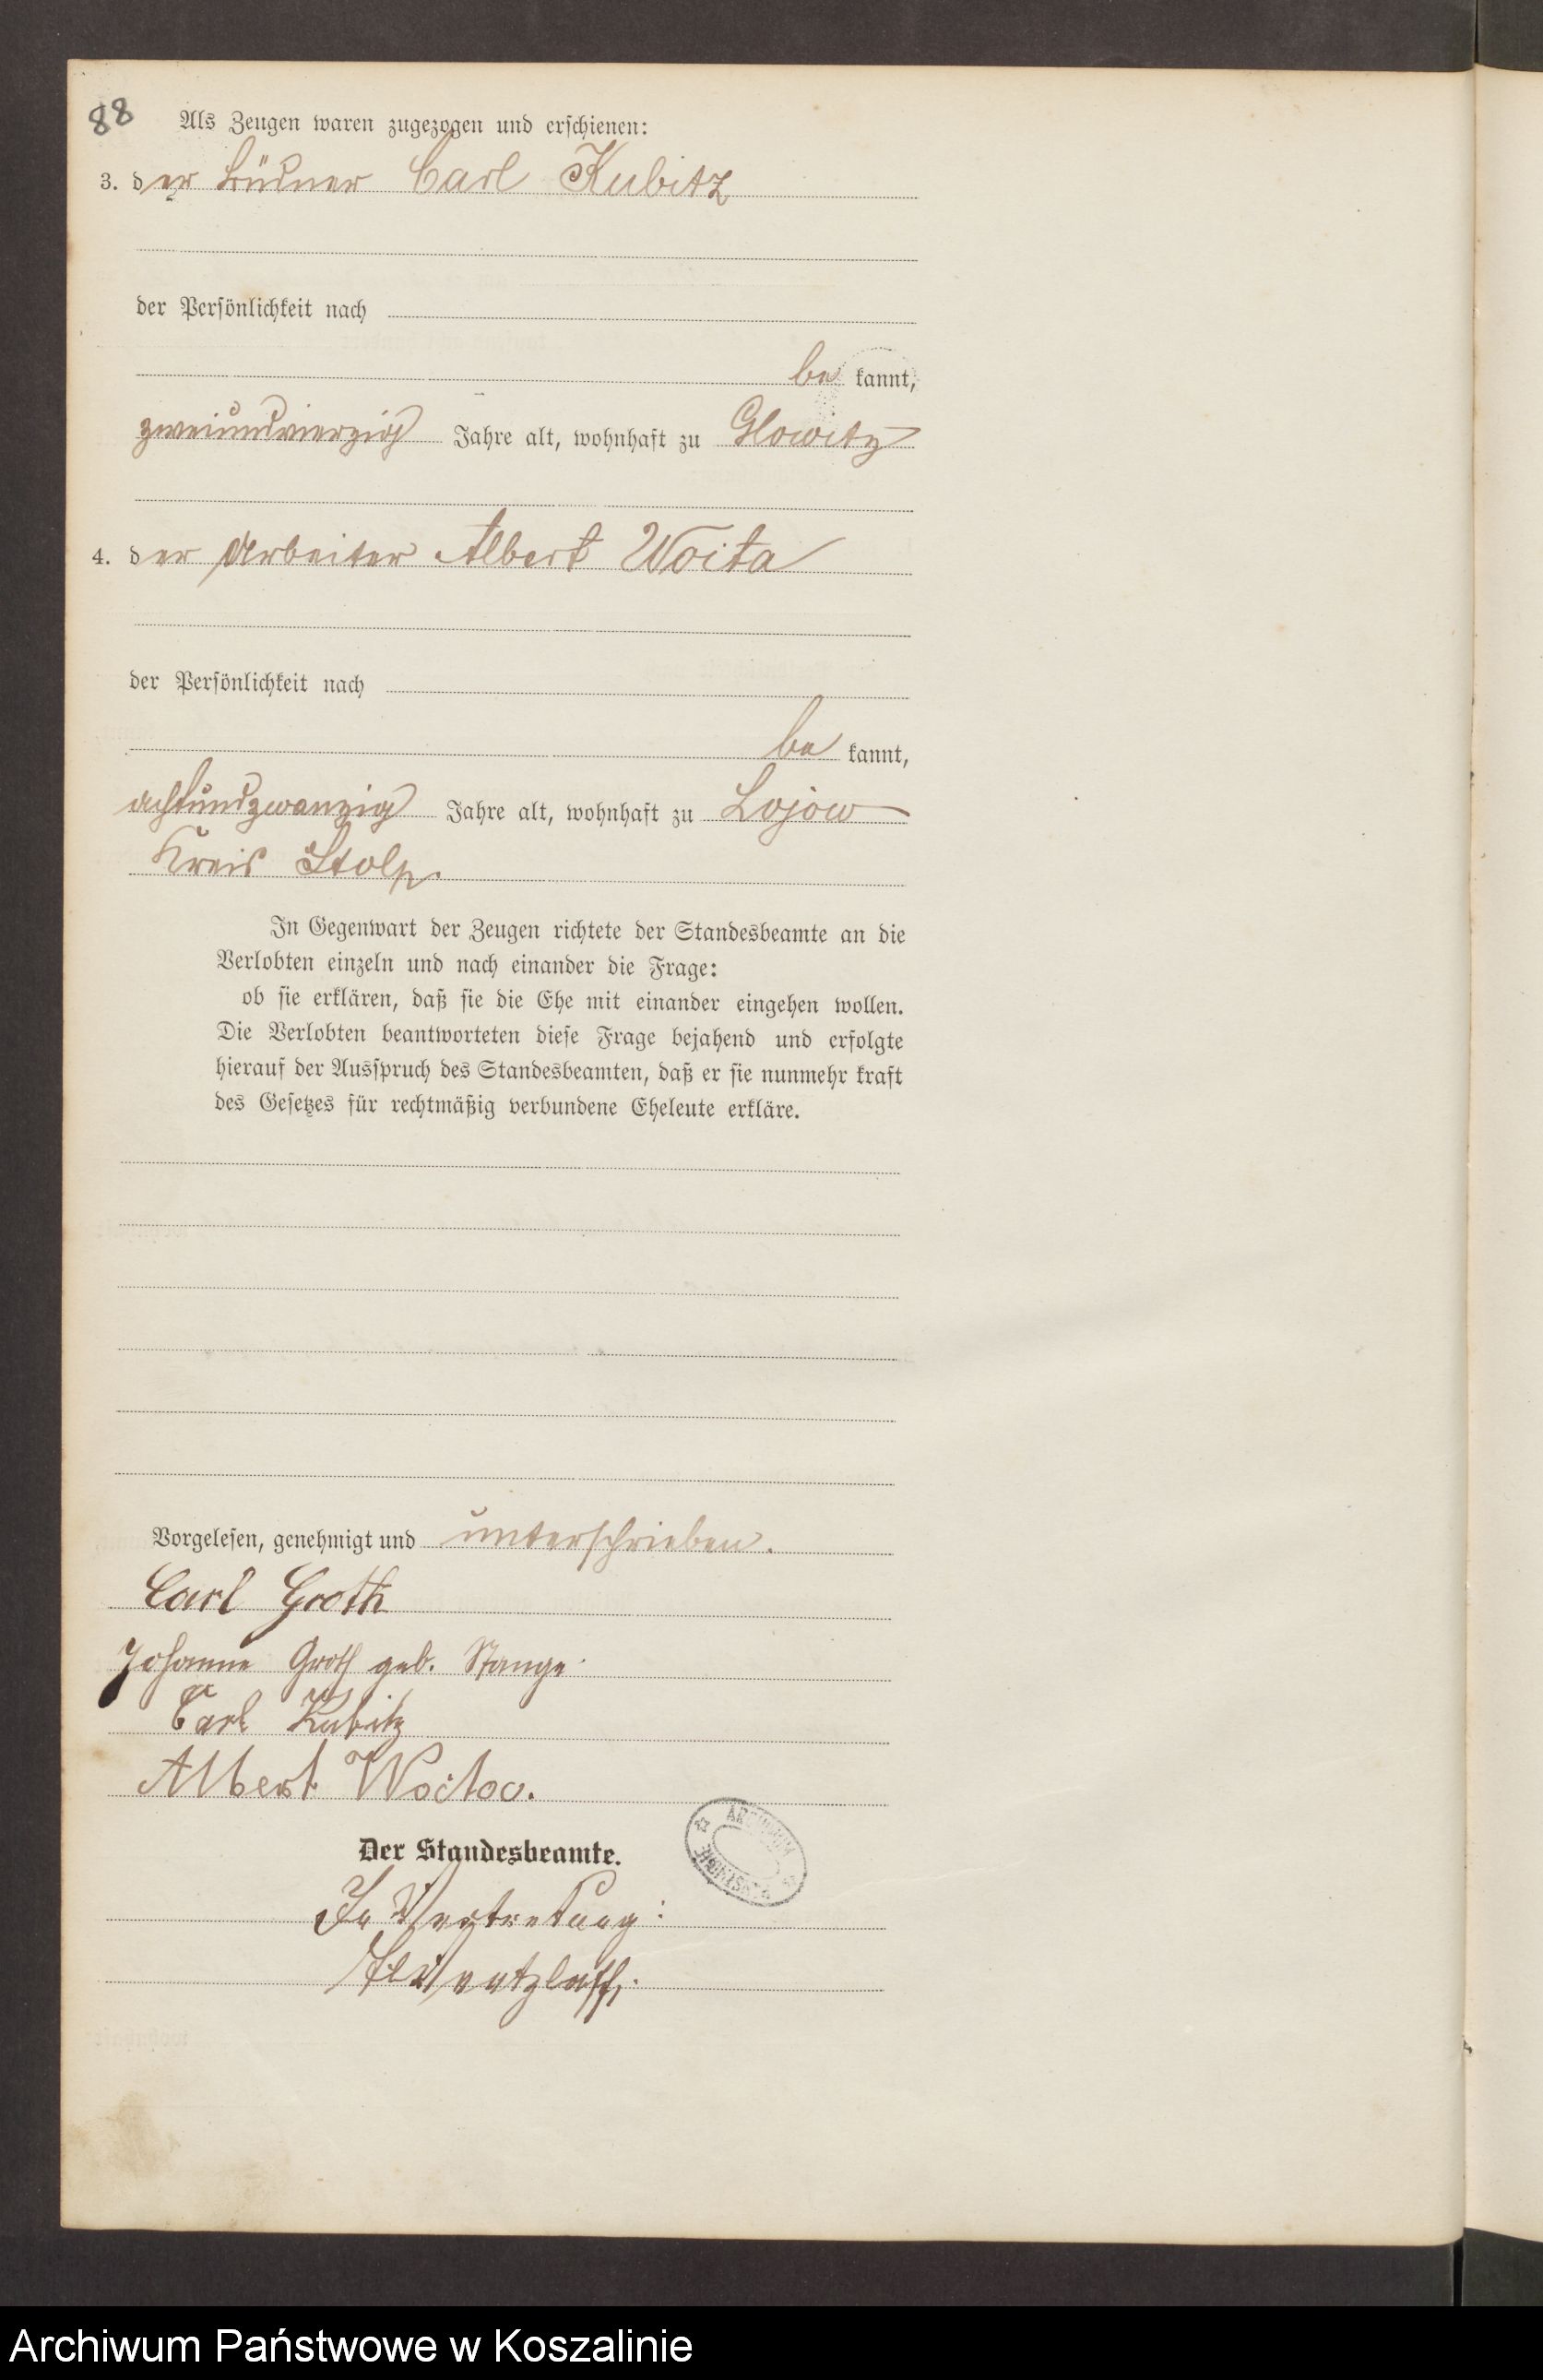 88
Als Zeugen waren zugezogen und erschienen:
3. der Büdner Carl Kubitz
der Persönlichkeit nach
be kannt,
zweiundvierzig Jahre alt, wohnhaft zu Glowitz
4. der Arbeiter Albert Woita
der Persönlichkeit nach
be kannt,
achtundzwanzig Jahre alt, wohnhaft zu Lojow
Kreis Stolp.
In Gegenwart der Zeugen richtete der Standesbeamte an die
Verlobten einzeln und nach einander die Frage:
ob sie erklären, daß sie die Ehe mit einander eingehen wollen.
Die Verlobten beantworteten diese Frage bejahend und erfolgte
hierauf der Ausspruch des Standesbeamten, daß er sie nunmehr kraft
des Gesetzes für rechtmäßig verbundene Eheleute erkläre.
Vorgelesen, genehmigt und unterschrieben.
Carl Groth
Johanne Groth geb. Stange
Carl Kubitz
Albert Woita.
ARCHIWUM
Der Standesbeamte.
In Vertretung:
Archiwum Państwowe w Koszalinie